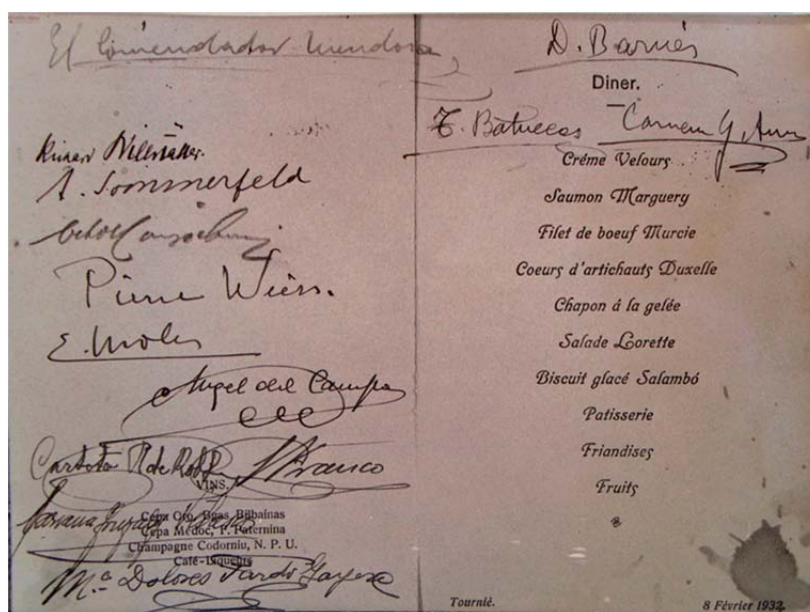 El Comendador Mendoza
A. Sommerfeld
Pierre Weiss.
E. Moles
Angel del Campo
Carlota R de
Franco
VINS.
Cepa Oro, Bgas. Bilbainas
Cepa Médoc, F. Paternina
Champagne Codorniu, N. P. U.
Café-Liqueurs
Mª Dolores Pardo Gayoso
D. Barnés
Diner.
T. Batuecas Carmen G.
Créme Velours
Saumon Marguery
Filet de boeuf Murcie
Coeurs d'artichauts Duxelle
Chapon á la gelée
Salade Lorette
Biscuit glacé Salambó
Patisserie
Friandises
Fruits
Tournié.
8 Février 1932.